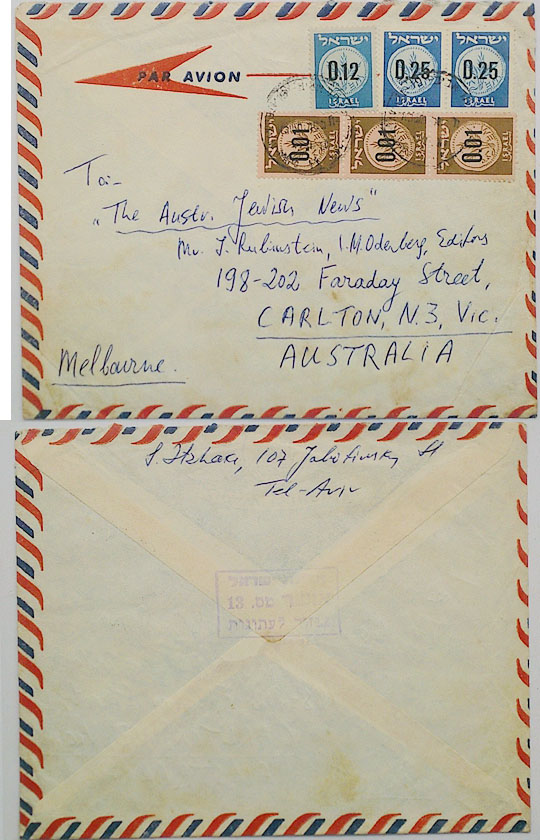 PAR AVION
ישראל ישראל ישראל
0.12 0.25 0.25
ISRAEL ISRAEL ISRAEL
ישראל ישראל ישראל
0.01 0.01 0.01
ISRAEL ISRAEL ISRAEL
To:-
„The Austr. Jewish News"
Mr. J. Rubinstein, I.M. Oderberg, Editors
198-202 Faraday Street,
CARLTON, N.3, Vic.
AUSTRALIA
Melbourne.
S. Itzhaki, 107 Jabotinsky St
Tel-Aviv
ישראל
מס. 13
לעתונות